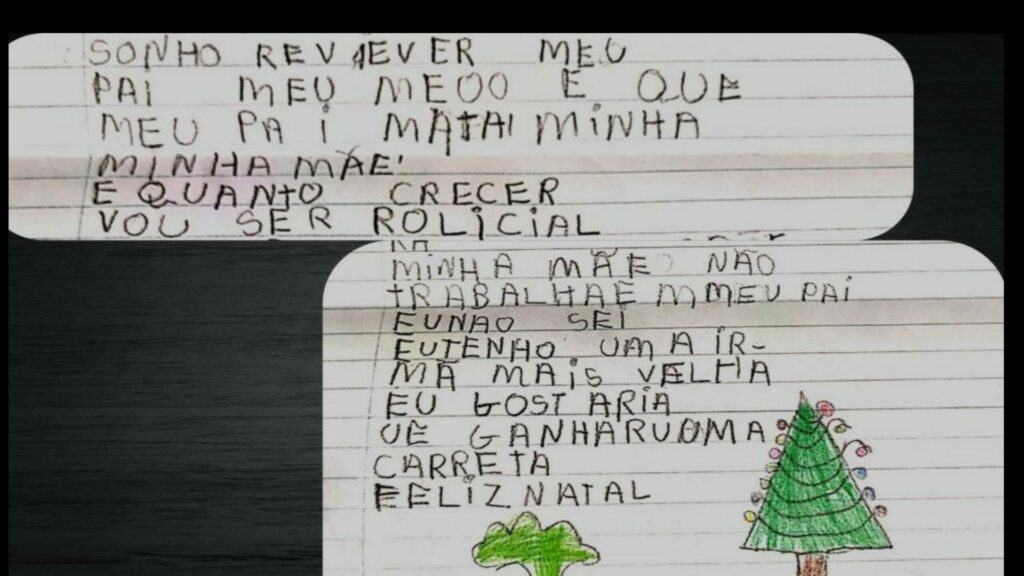 SONHO REVIEVER MEU
PAI MEU MEOO E QUE
MEU PAI MATAI MINHA
MINHA MÃE'
E QUANTO CRECER
VOU SER ROLICIAL
MINHA MÃE NÃO
TRABALHAE M MEU PAI
EUNÃO SEI
EUTENHO UMA IR-
MÃ MAIS VELHA
EU GOSTARIA
UE GANHARUOMA
CARRETA
FELIZ NATAL